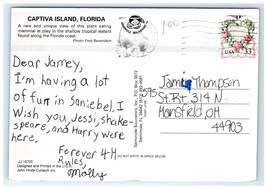 CAPTIVA ISLAND, FLORIDA
A rare and unique view of this plant eating
mammal at play in the shallow tropical waters
found along the Florida coast.
Photo: Fred Bavendam
100
USA
33
Dear Jamey,
I'm having a lot
of fun in Saniebel. I
wish you, Jessi, shake-
speare, and Harry were
here.
Forever 4-H
Rules,
Molly
Jamie Thompson
St. Rt. 314 N.
Mansfield, OH
44903
DO NOT WRITE IN SPACE BELOW
JJ 16703
Designed and Printed in the U.S.A.
John Hinde Curteich Inc.